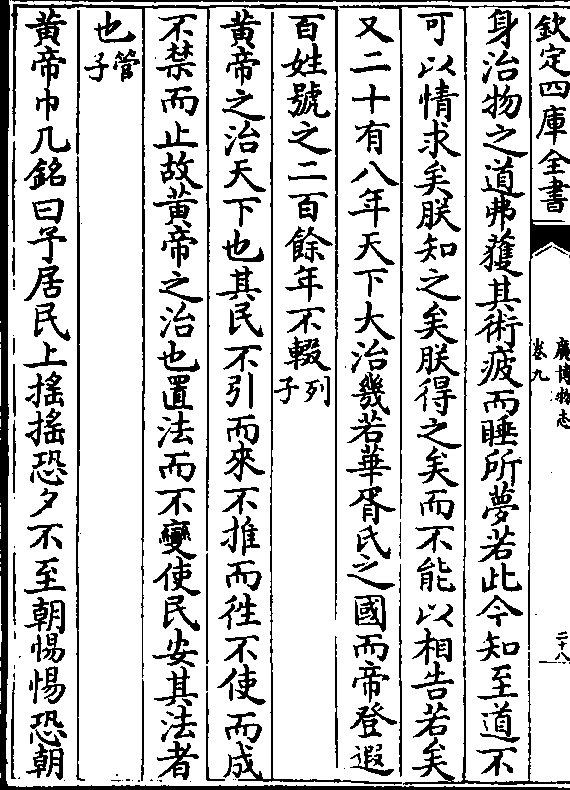 欽定四庫全書
廣博物志
卷九
二十八
身治物之道弗獲其術疲而睡所夢若此今知至道不
可以情求矣朕知之矣朕得之矣而不能以相告若矣
又二十有八年天下大治幾若華胥氏之國而帝登遐
百姓號之二百餘年不輟列
子
黄帝之治天下也其民不引而來不推而徃不使而成
不禁而止故黄帝之治也置法而不變使民安其法者
也管
子
黄帝巾几銘曰予居民上摇摇恐夕不至朝惕惕恐朝